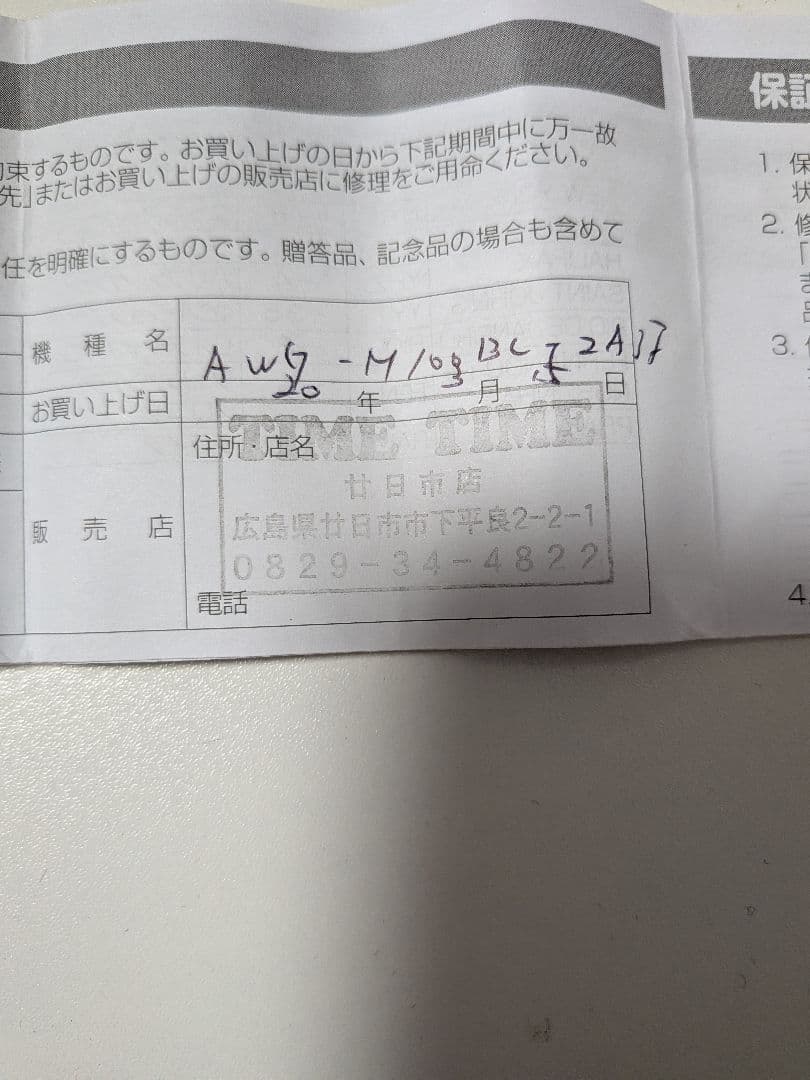 束するものです。お買い上げの日から下記期間中に万一故
先」またはお買い上げの販売店に修理をご用命ください。
任を明確にするものです。贈答品、記念品の場合も含めて
機種名
AWG-M
お買い上げ日
20 年 3 月 15 日
販売店
住所・店名
TIME TIME
廿日市店
広島県廿日市市下平良2-2-1
0829-34-4822
電話
保証
1. 保
状
2. 修
「
ま
品
3.
4